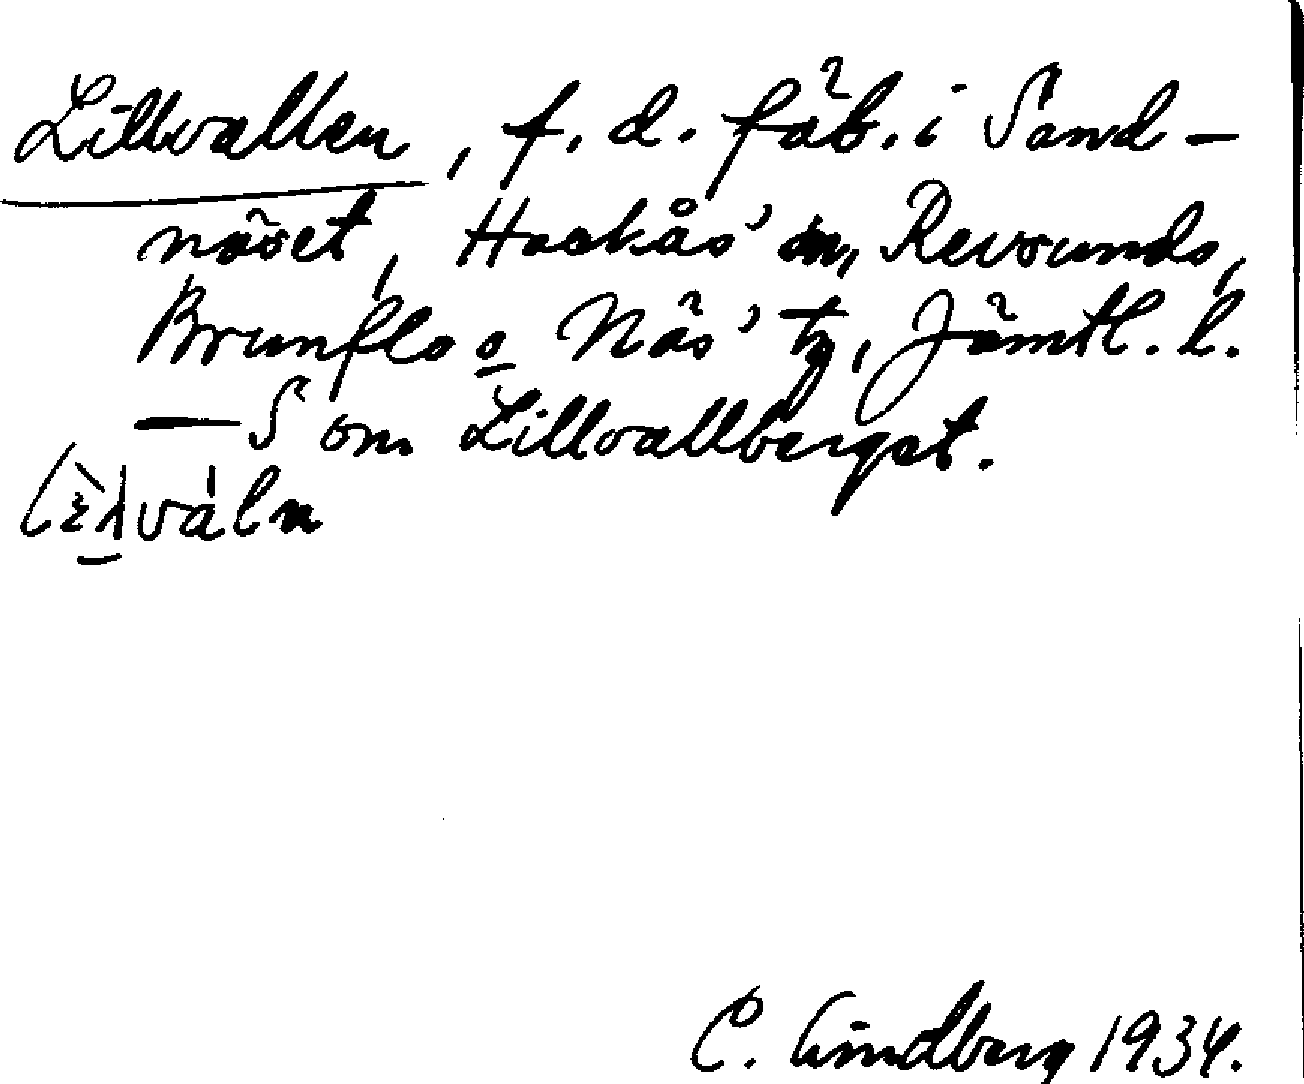 Lillvallen, f. d. fäb. i Sand-
näset, Hackås' sn, Revsunds,
Brunflo o Näs' tg, Jämtl. l.
— S om Lillvallberget.
C. Lindberg 1934.